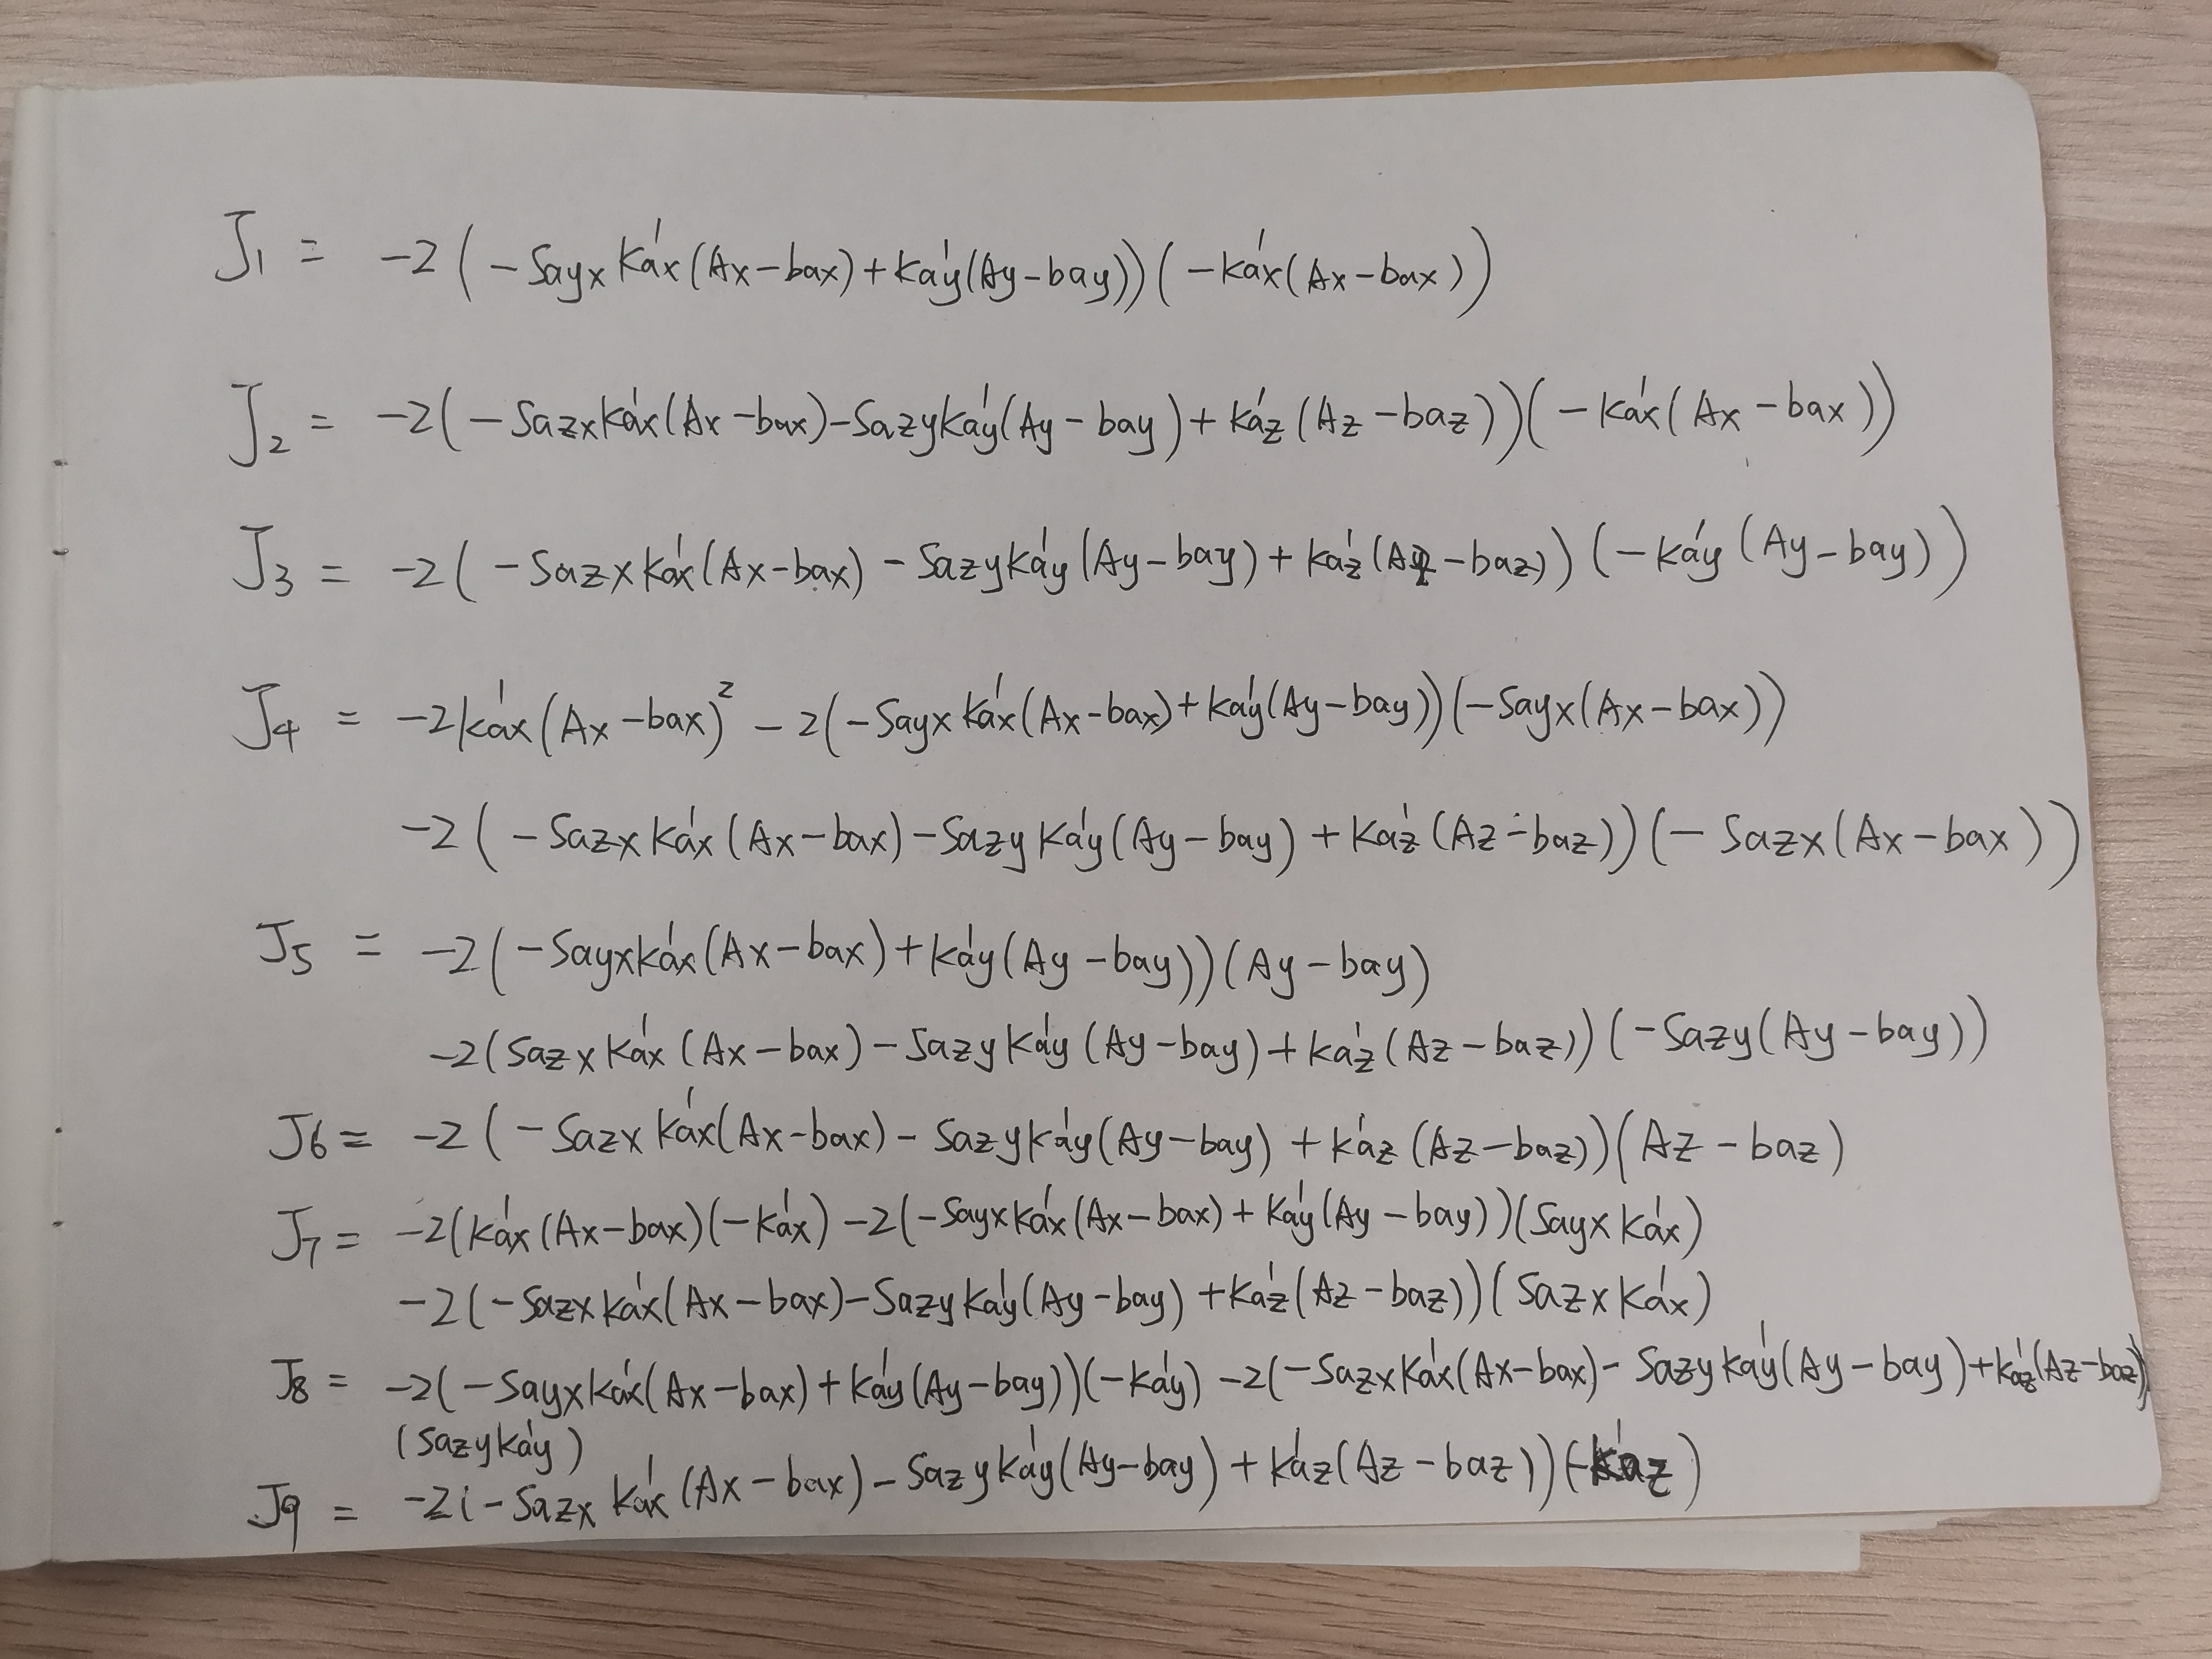 J1 = -2(-Sayx Ka'x(Ax-bax)+Ka'y(Ay-bay))(-Ka'x(Ax-bax))
J2 = -2(-SazxKa'x(Ax-bax)-SazyKa'y(Ay-bay)+Ka'z(Az-baz))(-Ka'x(Ax-bax))
J3 = -2(-SazxKa'x(Ax-bax)-SazyKa'y(Ay-bay)+Ka'z(Az-baz))(-Ka'y(Ay-bay))
J4 = -2Ka'x(Ax-bax)²-2(-SayxKa'x(Ax-bax)+Ka'y(Ay-bay))(-Sayx(Ax-bax))
-2(-SazxKa'x(Ax-bax)-SazyKa'y(Ay-bay)+Ka'z(Az-baz))(-Sazx(Ax-bax))
J5 = -2(-SayxKa'x(Ax-bax)+Ka'y(Ay-bay))(Ay-bay)
-2(SazxKa'x(Ax-bax)-SazyKa'y(Ay-bay)+Ka'z(Az-baz))(-Sazy(Ay-bay))
J6 = -2(-SazxKa'x(Ax-bax)-SazyKa'y(Ay-bay)+Ka'z(Az-baz))(Az-baz)
J7 = -2(Ka'x(Ax-bax)(-Ka'x)-2(-SayxKa'x(Ax-bax)+Ka'y(Ay-bay))(SayxKa'x)
-2(-SazxKa'x(Ax-bax)-SazyKa'y(Ay-bay)+Ka'z(Az-baz))(SazxKa'x)
J8 = -2(-SayxKa'x(Ax-bax)+Ka'y(Ay-bay))(-Ka'y)-2(-SazxKa'x(Ax-bax)-SazyKa'y(Ay-bay)+Ka'z(Az-baz))
(SazyKa'y)
J9 = -2(-SazxKa'x(Ax-bax)-SazyKa'y(Ay-bay)+Ka'z(Az-baz))(-Ka'z)